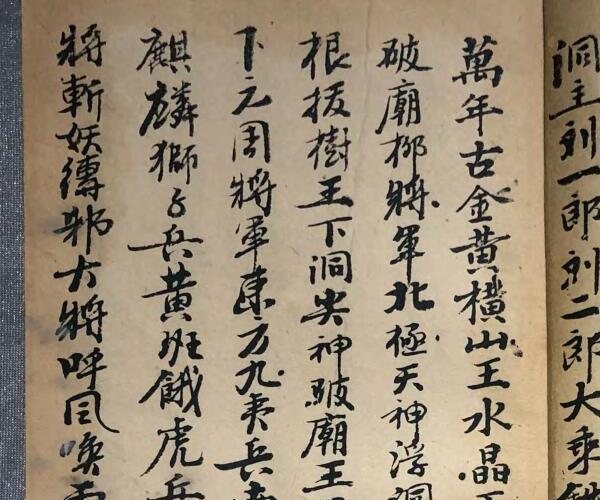 洞主刘一郎刘二郎大乘
萬年古金黃橫山王水晶
破廟柳將軍北極天神浮洞
根拔樹王下洞尖神破廟王
下元周將軍東方九夷兵
麒麟獅子兵黃班餓虎兵
將斬妖傳邪大將呼風喚